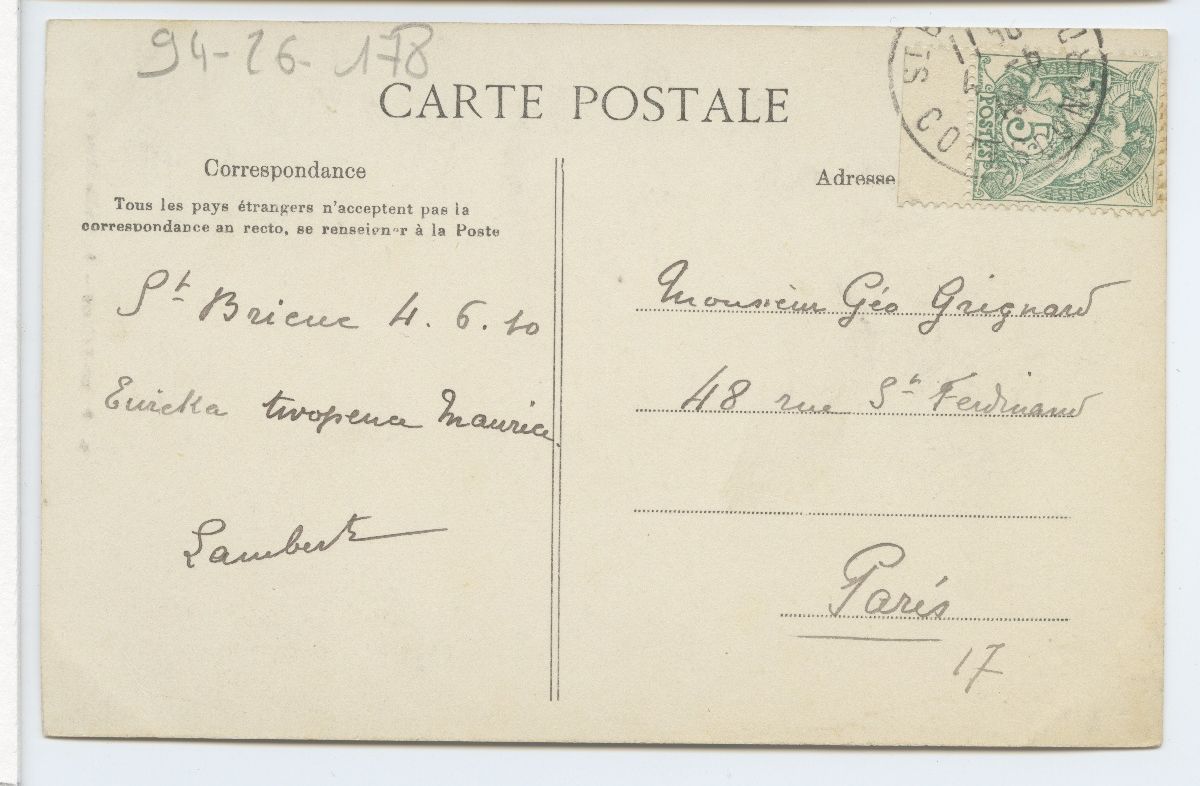 94-26-178
CARTE POSTALE
Correspondance
Tous les pays étrangers n'acceptent pas la
correspondance au recto, se renseigner à la Poste
St Brieuc 4.6.10
Eureka twopence Maurice
Lambert
Adresse
POSTES
5
COT
Monsieur Géo Grignard
48 rue St Ferdinand
Paris
17